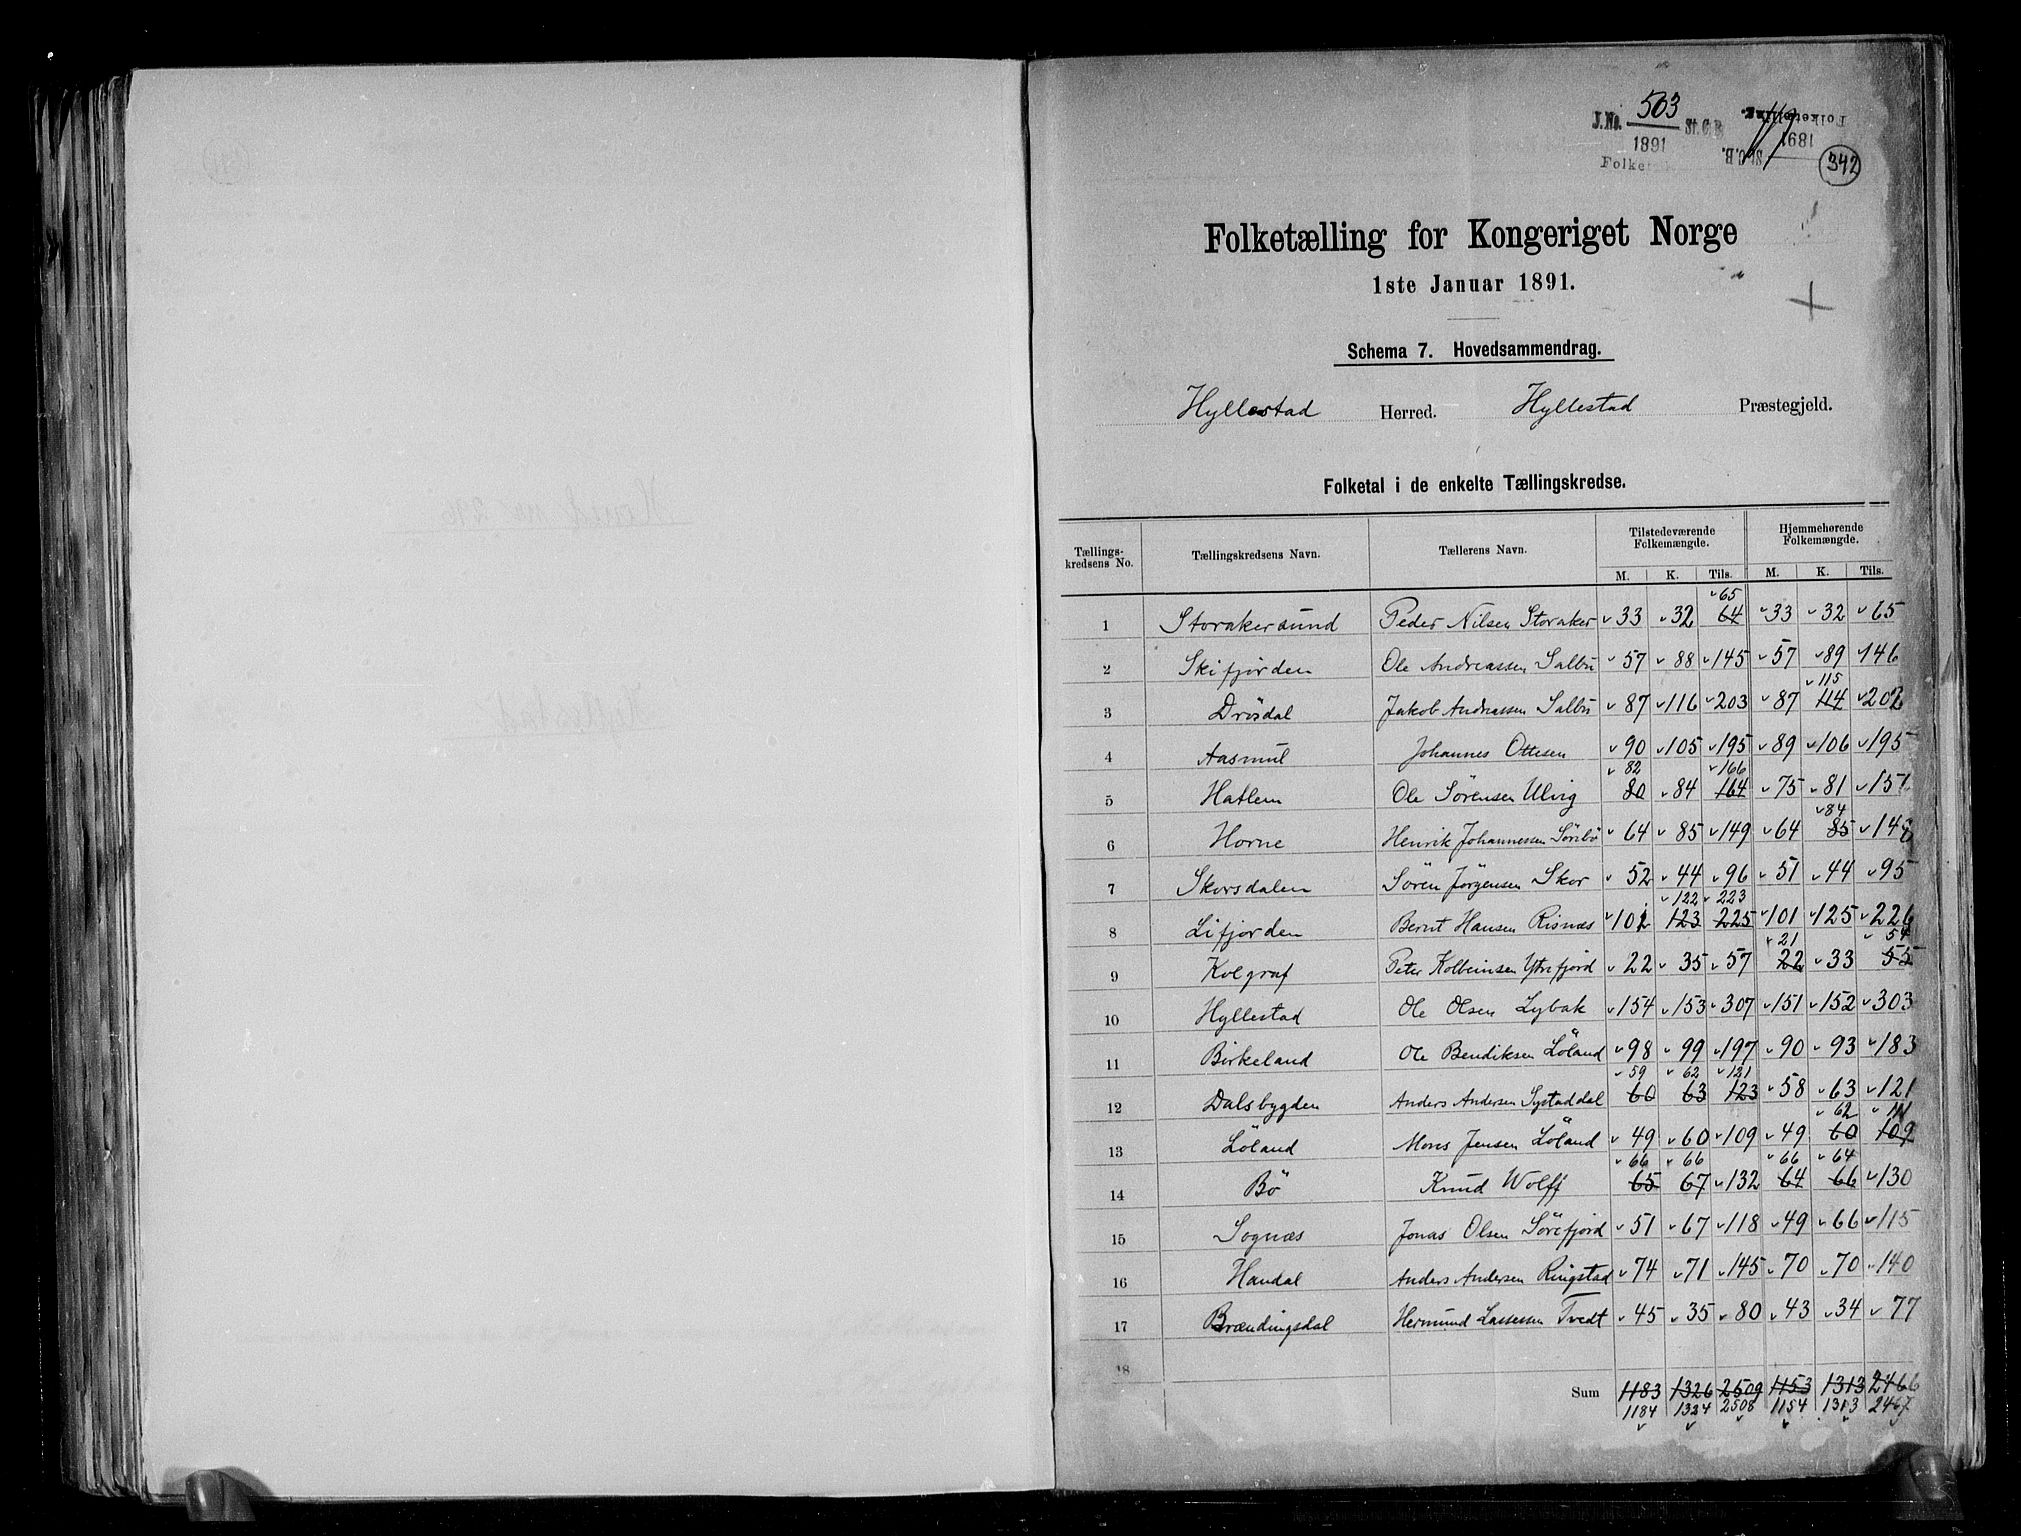 J.No. 503 St. C. B.
1891
Folketælling
1891
St. C. B.
342
Folketælling for Kongeriget Norge
1ste Januar 1891.
Schema 7. Hovedsammendrag.
Hyllestad Herred. Hyllestad Præstegjeld.
Folketal i de enkelte Tællingskredse.
Tællings-kredsens No. Tællingskredsens Navn. Tællerens Navn. Tilstedeværende Folkemængde. Hjemmehørende Folkemængde.
M. K. Tils. M. K. Tils.
65
1 Storakersund Peder Nilsen Storaker 33 32 64 33 32 65
2 Skifjorden Ole Andreassen Salbu 57 88 145 57 89 146
115
3 Drösdal Jakob Andreassen Salbu 87 116 203 87 114 202
4 Aasmul Johannes Ottesen 90 105 195 89 106 195
82 166
5 Hatlem Ole Sørensen Ulvig 80 84 164 75 81 157
84
6 Horne Henrik Johannessen Sörebö 64 85 149 64 85 148
7 Skorsdalen Sören Jørgensen Skor 52 44 96 51 44 95
122 223
8 Lifjorden Bernt Hansen Risnæs 101 123 225 101 125 226
21 54
9 Kolgraf Peter Kolbeinsen Ytrefjord 22 35 57 22 33 55
10 Hyllestad Ole Olsen Lybak 154 153 307 151 152 303
11 Birkeland Ole Bendiksen Löland 98 99 197 90 93 183
59 62 121
12 Dalsbygden Anders Andersen Systaddal 60 63 123 58 63 121
62 111
13 Löland Mons Jensen Löland 49 60 109 49 60 109
66 66 66 64
14 Bö Knud Wolff 65 67 132 64 66 130
15 Sognæs Jonas Olsen Sörefjord 51 67 118 49 66 115
16 Handal Anders Andersen Ringstad 74 71 145 70 70 140
17 Brændingsdal Hermund Lassessen Tvedt 45 35 80 43 34 77
18
Sum 1183 1326 2509 1153 1313 2466
1184 1324 2508 1154 1313 2467